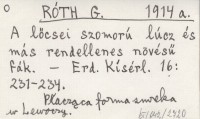 RÓTH G. 1914 a.
A lőcsei szomorú lúcz és
más rendellenes növésű
fák. – Erd. Kísérl. 16:
231-234.
Płacząca forma smreka
w Lewoczy.